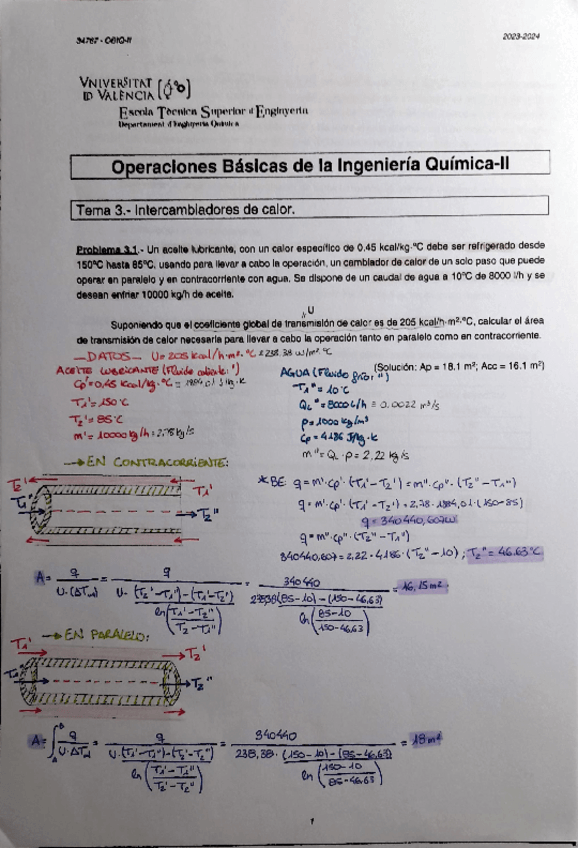 34767 - OBIQ-II
2023-2024
VNIVERSITAT
ID VALÈNCIA
Escola Tècnica Superior d'Enginyeria
Departament d'Enginyeria Química
Operaciones Básicas de la Ingeniería Química-II
Tema 3.- Intercambiadores de calor.
Problema 3.1.- Un aceite lubricante, con un calor específico de 0,45 kcal/kg·ºC debe ser refrigerado desde
150ºC hasta 85ºC, usando para llevar a cabo la operación, un cambiador de calor de un solo paso que puede
operar en paralelo y en contracorriente con agua. Se dispone de un caudal de agua a 10ºC de 8000 l/h y se
desean enfriar 10000 kg/h de aceite.
U
Suponiendo que el coeficiente global de transmisión de calor es de 205 kcal/h·m²·ºC, calcular el área
de transmisión de calor necesaria para llevar a cabo la operación tanto en paralelo como en contracorriente.
(Solución: Ap = 18.1 m²; Acc = 16.1 m²)
—DATOS— U=205 kcal/h·m²·ºC = 238.38 W/m²·ºC
ACEITE LUBRICANTE (Fluido caliente: ')
Cp'=0,45 kcal/kg·ºC = 1884,01 J/kg·K
T1'=150ºC
T2'=85ºC
m'=10000 kg/h = 2.78 kg/s
AGUA (Fluido frío: '')
T1''=10ºC
QL''=8000 L/h = 0.0022 m³/s
ρ=1000 kg/m³
Cp=4186 J/kg·K
m''=QL·ρ = 2,22 kg/s
→ EN CONTRACORRIENTE:
T2' T1'
T1'' T2''
*BE: q=m'·cp'·(T1'-T2') = m''·cp''·(T2''-T1'')
q=m'·cp'·(T1'-T2') = 2.78·1884,01·(150-85)
q=340440,607W
q=m''·cp''·(T2''-T1'')
340440,607=2.22·4186·(T2''-10) ; T2''=46.63ºC
A = q / U·(ΔTml) = q / U·(T2'-T1'')-(T1'-T2'') / ln(T2'-T1'' / T1'-T2'') = 340440 / 238,38(85-10)-(150-46,63) / ln(85-10 / 150-46,63) = 16,15m²
→ EN PARALELO:
T1' T2'
T1'' T2''
A = ∫ q / U·ΔTml = q / U·(T1'-T1'')-(T2'-T2'') / ln(T1'-T1'' / T2'-T2'') = 340440 / 238,38·(150-10)-(85-46,63) / ln(150-10 / 85-46,63) = 18m²
1